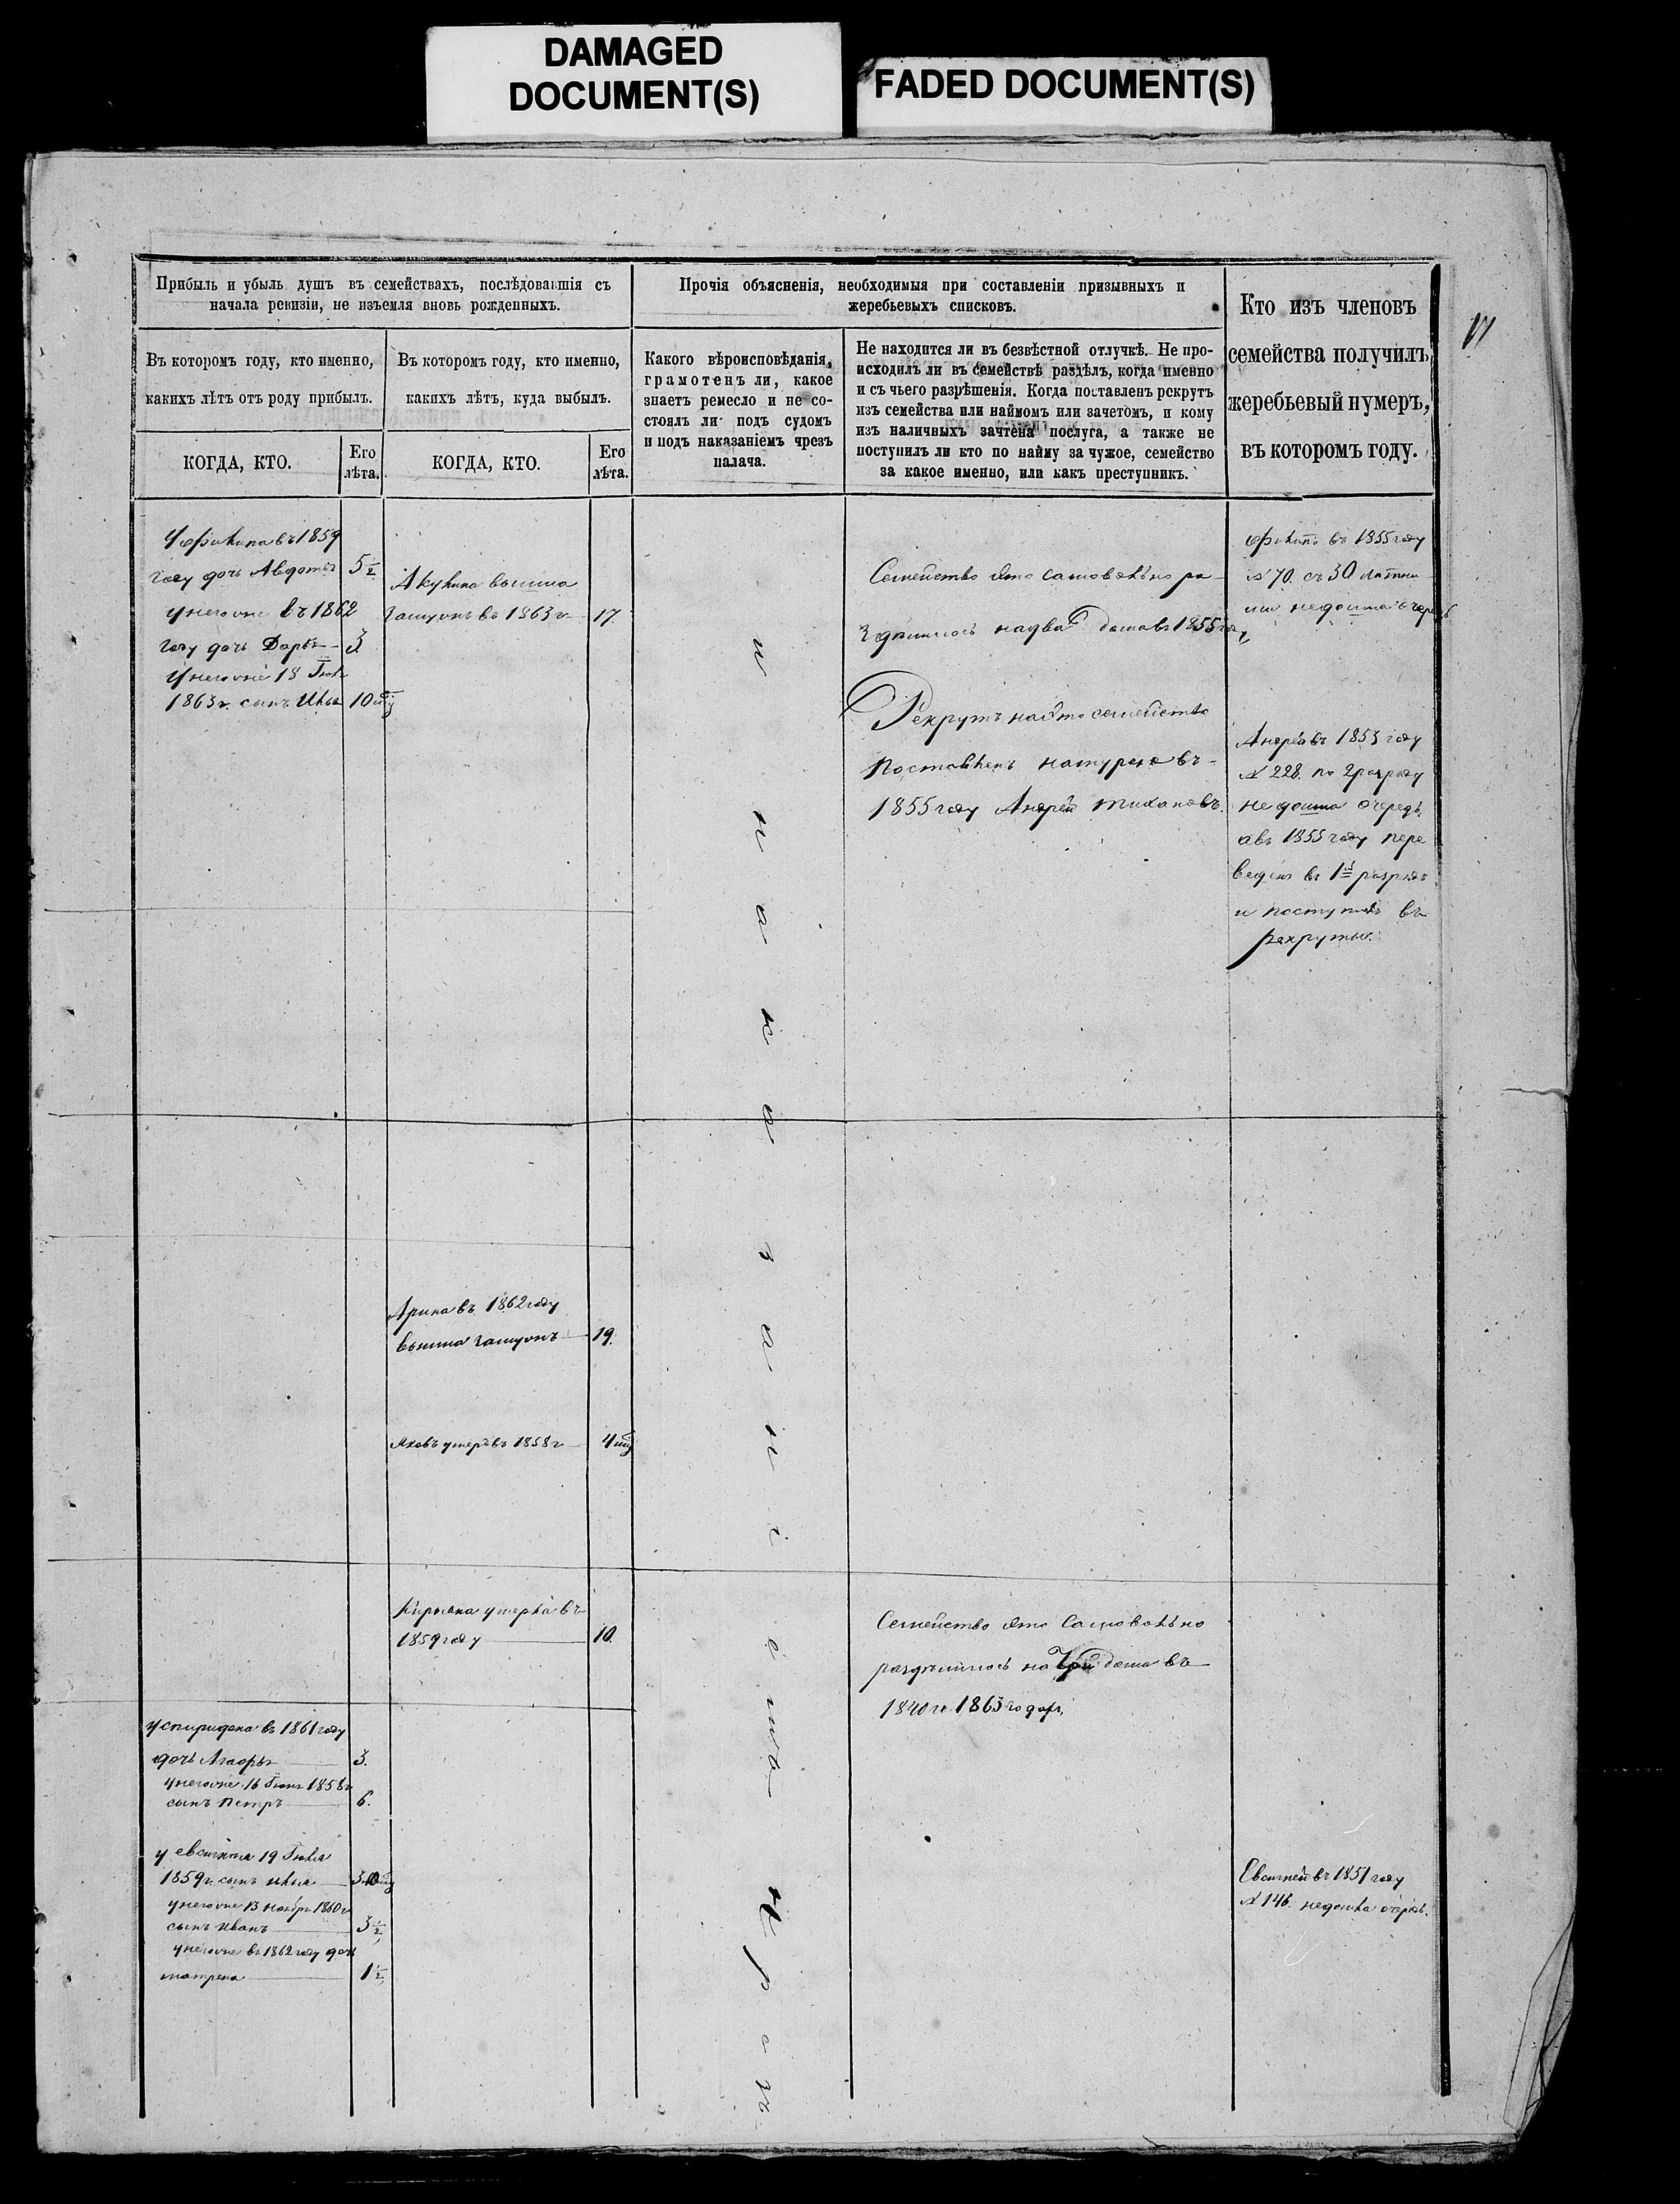 DAMAGED
DOCUMENT(S)
FADED DOCUMENT(S)
Прибыль и убыль душъ въ семействахъ, послѣдовавшія съ
начала ревизіи, не изъемля вновь рожденныхъ.
Въ которомъ году, кто именно,
какихъ лѣтъ отъ роду прибылъ.
КОГДА, КТО.
Его
лѣта.
Въ которомъ году, кто именно,
какихъ лѣтъ, куда выбылъ.
КОГДА, КТО.
Его
лѣта.
Прочія объясненія, необходимыя при составленіи призывныхъ и
жеребьевыхъ списковъ.
Какого вѣроисповѣданія,
грамотенъ ли, какое
знаетъ ремесло и не со-
стоялъ ли подъ судомъ
и подъ наказаніемъ чрезъ
палача.
Не находится ли въ безвѣстной отлучкѣ. Не про-
исходилъ ли въ семействѣ раздѣлъ, когда именно
и съ чьего разрѣшенія. Когда поставленъ рекрутъ
изъ семейства или наймомъ или зачетомъ, и кому
изъ наличныхъ зачтена послуга, а также не
поступилъ ли кто по найму за чужое, семейство
за какое именно, или какъ преступникъ.
Кто изъ членовъ
семейства получилъ
жеребьевый нумеръ,
въ которомъ году.
въ 1859
году дочь Авдотья 5 1/2
у негоже въ 1862
году дочь Дарья 3
у негоже 18
1863 г. сынъ Илья 10
Акулина вышла
замужъ въ 1863 г 17.
Арина въ 1862 году
вышла замужъ 19.
Яковъ умеръ въ 1858 г 4
умерла въ
1859 году 10.
у Спиридона въ 1861 году
дочь 3.
у негоже 16 1858 г
сынъ Петръ 6.
у Евсигнея 19 Іюля
1859 г. сынъ Илья
у негоже 13 ноябр 1860 г
сынъ Иванъ 3 1/2
у негоже въ 1862 году дочь
матрена 1 1/2
и наказаніе
Семейство это самовольно ра-
здѣлилось на два дома въ 1855 году
Рекрутъ на это семейство
поставленъ натурою въ
1855 году Андрей Тихоновъ.
Семейство это самовольно
раздѣлилось на три дома въ
1840 и 1863 годахъ.
въ 1855 году
№ 70. съ 30
недошла очередь
Андрей въ 1853 году
№ 228. по 2 разряду
не дошла очередь.
а въ 1855 году пере
веденъ въ 1й разрядъ
и поступилъ въ
рекруты.
Евсигней въ 1851 году
№ 146. недошла очередь.